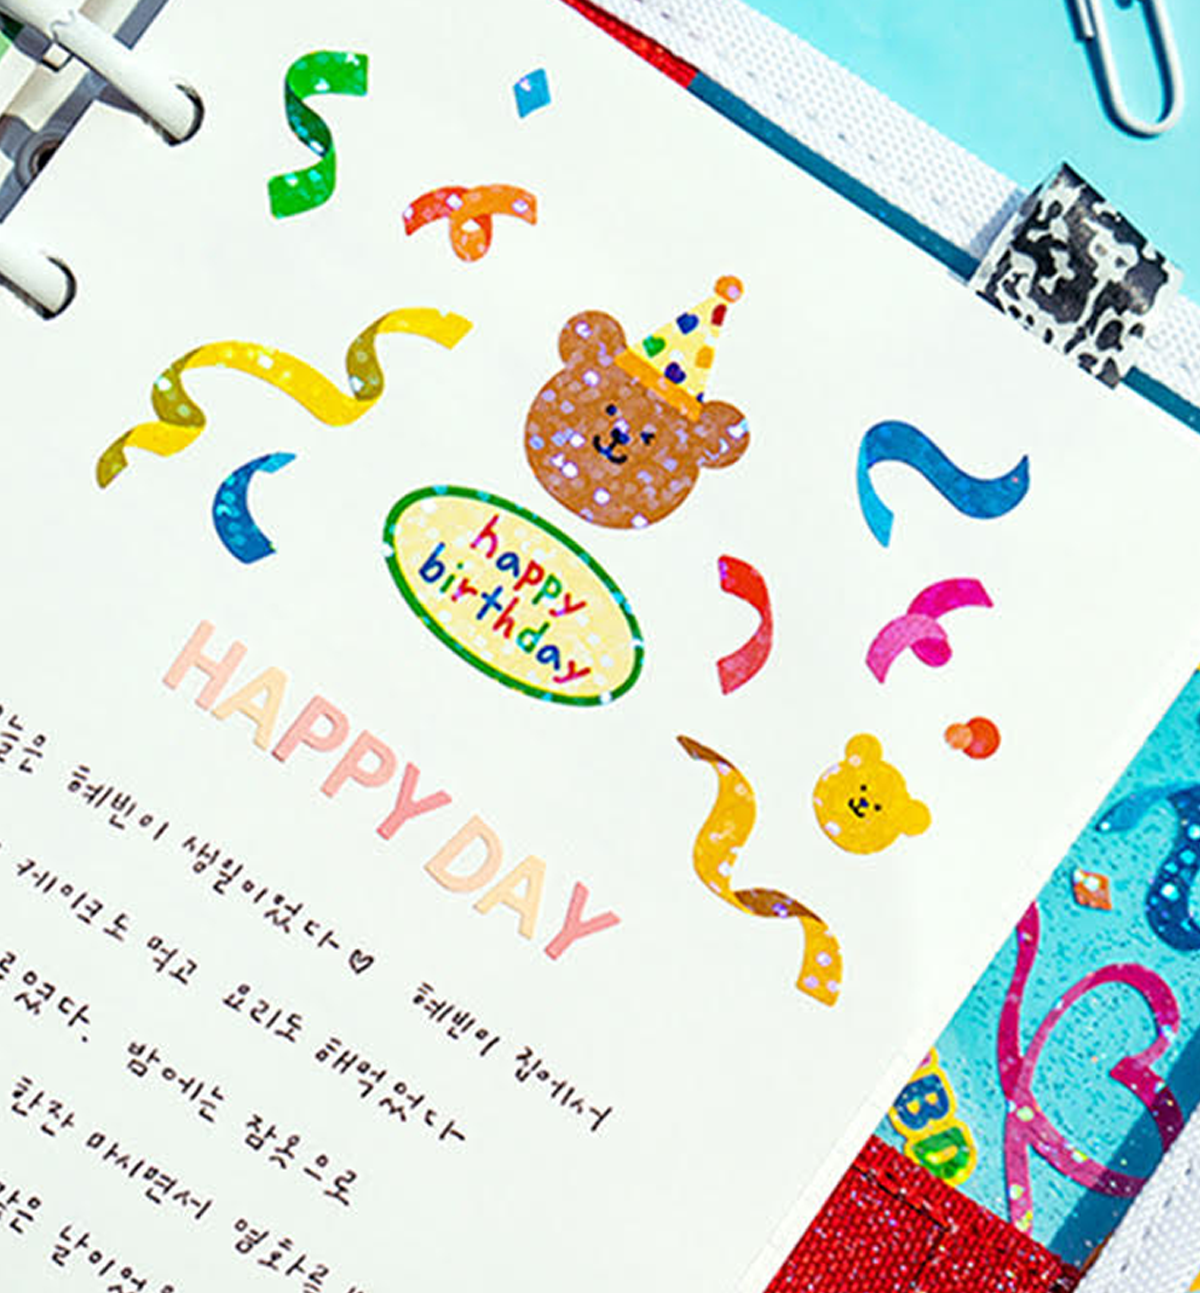 happy
birthday
HAPPY DAY
혜빈이 생일이었다♡ 혜빈이 집에서
케이크도 먹고 요리도 해먹었다
밤에는 잠옷으로
한잔 마시면서 영화를
날이었
BD